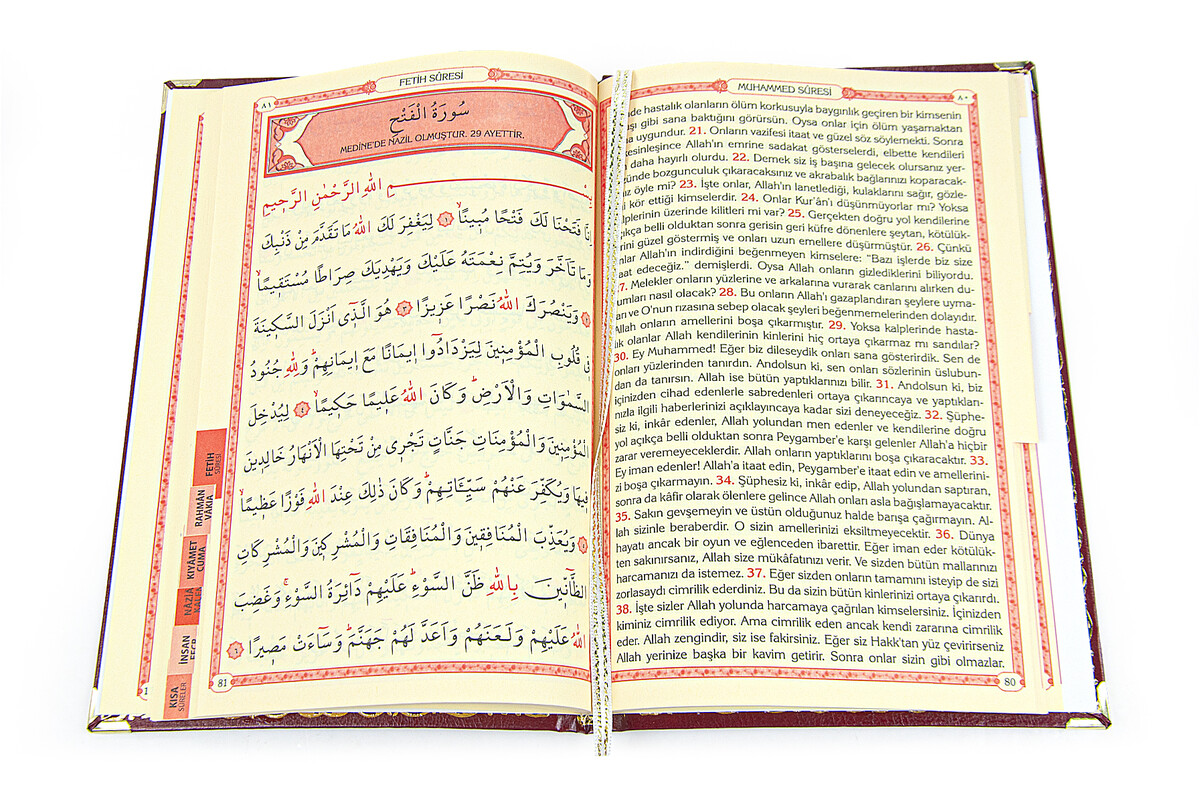 MUHAMMED SÛRESİ
٨٠
de hastalık olanların ölüm korkusuyla baygınlık geçiren bir kimsenin
şı gibi sana baktığını görürsün. Oysa onlar için ölüm yaşamaktan
a uygundur. 21. Onların vazifesi itaat ve güzel söz söylemekti. Sonra
kesinleşince Allah'ın emrine sadakat gösterselerdi, elbette kendileri
daha hayırlı olurdu. 22. Demek siz iş başına gelecek olursanız yer-
ünde bozgunculuk çıkaracaksınız ve akrabalık bağlarınızı koparacak-
ız öyle mi? 23. İşte onlar, Allah'ın lanetlediği, kulaklarını sağır, gözle-
i kör ettiği kimselerdir. 24. Onlar Kur'ân'ı düşünmüyorlar mı? Yoksa
alplerinin üzerinde kilitleri mi var? 25. Gerçekten doğru yol kendilerine
çıkça belli olduktan sonra gerisin geri küfre dönenlere şeytan, kötülük-
rini güzel göstermiş ve onları uzun emellere düşürmüştür. 26. Çünkü
onlar Allah'ın indirdiğini beğenmeyen kimselere: "Bazı işlerde biz size
aat edeceğiz." demişlerdi. Oysa Allah onların gizlediklerini biliyordu.
27. Melekler onların yüzlerine ve arkalarına vurarak canlarını alırken du-
umları nasıl olacak? 28. Bu onların Allah'ı gazaplandıran şeylere uyma-
arı ve O'nun rızasına sebep olacak şeyleri beğenmemelerinden dolayıdır.
Allah onların amellerini boşa çıkarmıştır. 29. Yoksa kalplerinde hasta-
lık olanlar Allah kendilerinin kinlerini hiç ortaya çıkarmaz mı sandılar?
30. Ey Muhammed! Eğer biz dileseydik onları sana gösterirdik. Sen de
onları yüzlerinden tanırdın. Andolsun ki, sen onları sözlerinin üslubun-
dan da tanırsın. Allah ise bütün yaptıklarınızı bilir. 31. Andolsun ki, biz
içinizden cihad edenlerle sabredenleri ortaya çıkarıncaya ve yaptıkları-
nızla ilgili haberlerinizi açıklayıncaya kadar sizi deneyeceğiz. 32. Şüphe-
siz ki, inkâr edenler, Allah yolundan men edenler ve kendilerine doğru
yol açıkça belli olduktan sonra Peygamber'e karşı gelenler Allah'a hiçbir
zarar veremeyeceklerdir. Allah onların yaptıklarını boşa çıkaracaktır. 33.
Ey iman edenler! Allah'a itaat edin, Peygamber'e itaat edin ve amellerini-
zi boşa çıkarmayın. 34. Şüphesiz ki, inkâr edip, Allah yolundan saptıran,
sonra da kâfir olarak ölenlere gelince Allah onları asla bağışlamayacaktır.
35. Sakın gevşemeyin ve üstün olduğunuz halde barışa çağırmayın. Al-
lah sizinle beraberdir. O sizin amellerinizi eksiltmeyecektir. 36. Dünya
hayatı ancak bir oyun ve eğlenceden ibarettir. Eğer iman eder kötülük-
ten sakınırsanız, Allah size mükâfatınızı verir. Ve sizden bütün mallarınızı
harcamanızı da istemez. 37. Eğer sizden onların tamamını isteyip de sizi
zorlasaydı cimrilik ederdiniz. Bu da sizin bütün kinlerinizi ortaya çıkarırdı.
38. İşte sizler Allah yolunda harcamaya çağrılan kimselersiniz. İçinizden
kiminiz cimrilik ediyor. Ama cimrilik eden ancak kendi zararına cimrilik
eder. Allah zengindir, siz ise fakirsiniz. Eğer siz Hakk'tan yüz çevirirseniz
Allah yerinize başka bir kavim getirir. Sonra onlar sizin gibi olmazlar.
80
FETİH SÛRESİ
٨١
سُورَةُ الْفَتْحِ
MEDİNE'DE NAZİL OLMUŞTUR. 29 AYETTİR.
بِسْمِ اللهِ الرَّحْمٰنِ الرَّحِيمِ
اِنَّا فَتَحْنَا لَكَ فَتْحًا مُبِينًاۙ ﴿١﴾ لِيَغْفِرَ لَكَ اللهُ مَا تَقَدَّمَ مِنْ ذَنْبِكَ
وَمَا تَاَخَّرَ وَيُتِمَّ نِعْمَتَهُ عَلَيْكَ وَيَهْدِيَكَ صِرَاطًا مُسْتَقِيمًاۙ
﴿٢﴾ وَيَنْصُرَكَ اللهُ نَصْرًا عَزِيزًا ﴿٣﴾ هُوَ الَّذِٓي اَنْزَلَ السَّكِينَةَ
فِي قُلُوبِ الْمُؤْمِنِينَ لِيَزْدَادُٓوا اِيمَانًا مَعَ اِيمَانِهِمْۜ وَلِلّٰهِ جُنُودُ
السَّمٰوَاتِ وَالْاَرْضِۜ وَكَانَ اللهُ عَلِيمًا حَكِيمًاۙ ﴿٤﴾ لِيُدْخِلَ
الْمُؤْمِنِينَ وَالْمُؤْمِنَاتِ جَنَّاتٍ تَجْرِي مِنْ تَحْتِهَا الْاَنْهَارُ خَالِدِينَ
فِيهَا وَيُكَفِّرَ عَنْهُمْ سَيِّـَٔاتِهِمْۜ وَكَانَ ذٰلِكَ عِنْدَ اللهِ فَوْزًا عَظِيمًاۙ
﴿٥﴾ وَيُعَذِّبَ الْمُنَافِقِينَ وَالْمُنَافِقَاتِ وَالْمُشْرِكِينَ وَالْمُشْرِكَاتِ
الظَّٓانِّينَ بِاللهِ ظَنَّ السَّوْءِۜ عَلَيْهِمْ دَٓائِرَةُ السَّوْءِۚ وَغَضِبَ
اللهُ عَلَيْهِمْ وَلَعَنَهُمْ وَاَعَدَّ لَهُمْ جَهَنَّمَۜ وَسَٓاءَتْ مَصِيرًا ﴿٦﴾
81
FETİH
SÛRESİ
RAHMÂN
VAKIA
KIYÂMET
CUMA
NAZİA
KALEM
İNSAN
KISA
SÛRELER
1